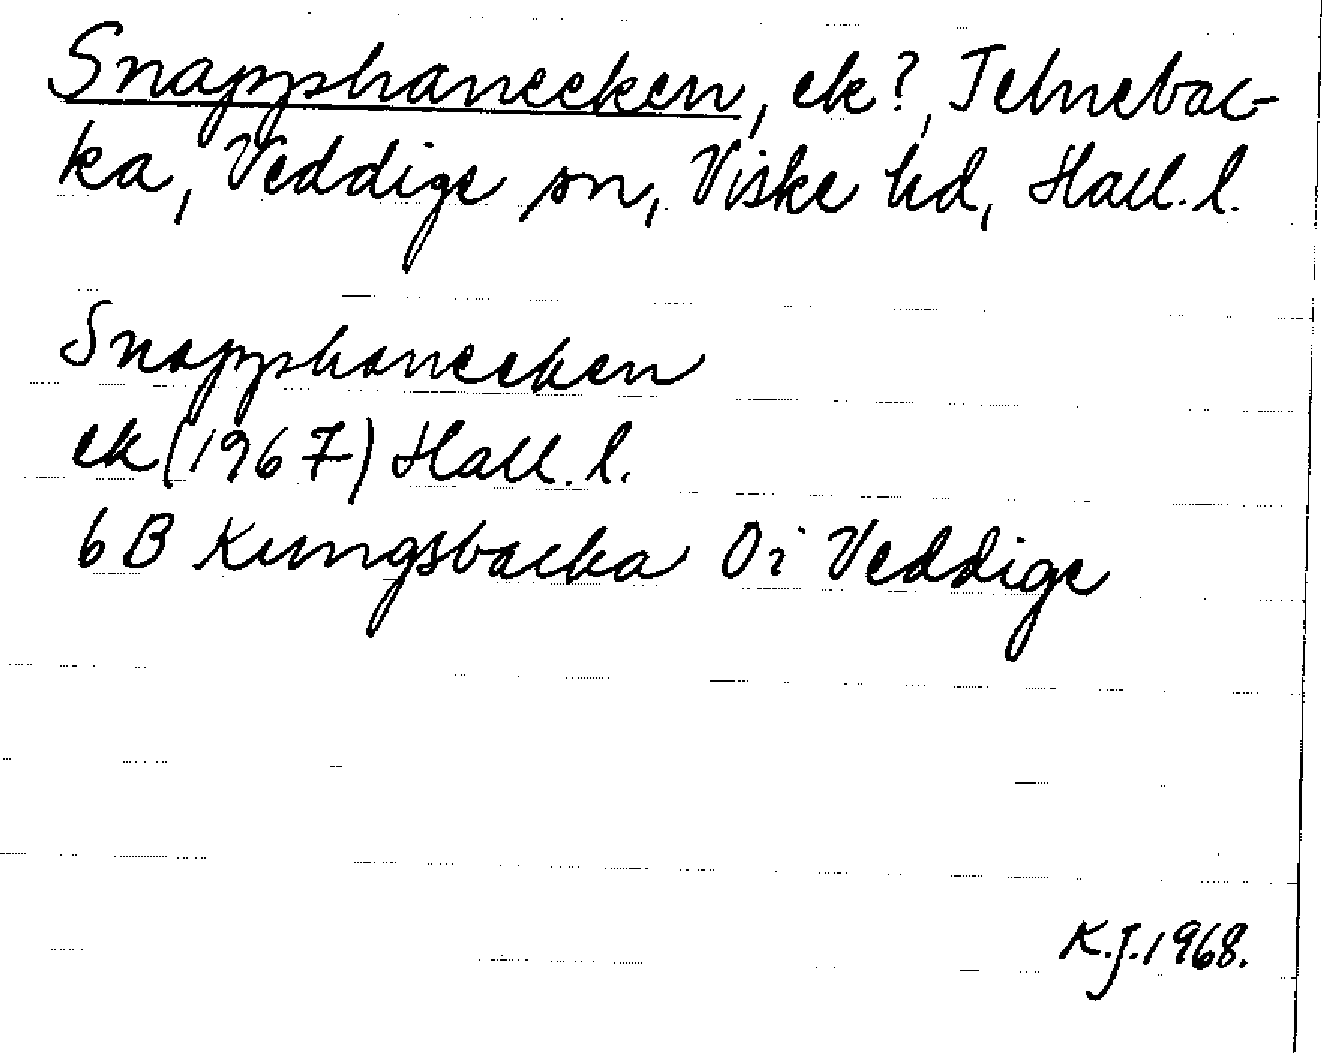 Snapphaneeken, ek?, Jelnebac-
ka, Veddige sn, Viske hd, Hall. l.
Snapphaneeken
ek (1967) Hall. l.
6B Kungsbacka 0i Veddige
K.J. 1968.